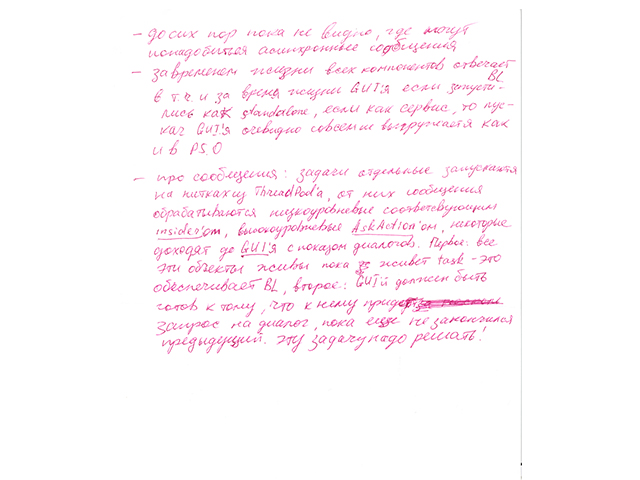 – до сих пор пока не видно, где могут
понадобиться асинхронные сообщения
– за временем жизни всех компонентов отвечает
BL
в т.ч. и за время жизни GUI'я если запусти-
лись как standalone, если как сервис, то пус-
кай GUI'я очевидно совсем выгружается как
и в P5.0
– про сообщения: задачи отдельные запускаются
на нитках из ThreadPool'a, от них сообщения
обрабатываются низкоуровневые соответсвующим
insider'ом, высокоуровневые AskAction'ом, некоторые
доходят до GUI'я с показом диалогов. Первое: все
эти объекты живы пока живет task – это
обеспечивает BL, второе: GUI й должен быть
готов к тому, что к нему придет
запрос на диалог, пока еще не закончился
предыдущий. Эту задачу надо решать!